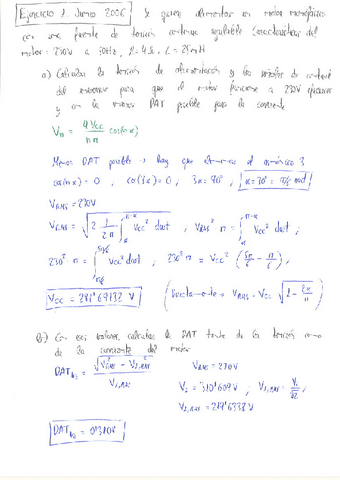 Ejercicio 1. Junio 2006 Se quiere alimentar un motor monofásico
con una fuente de tensión continua ajustable (características del
motor: 230V a 50Hz, R=4Ω, L=25mH
a) Calcular la tensión de alimentación y los ángulos de control
del inversor para que el motor funcione a 230V eficaces
y con la menor DAT posible para la corriente
Vn = 4Vcc/nπ cos(nα)
Menor DAT posible → hay que eliminar el armónico 3
cos(nα) = 0 , cos(3α) = 0 , 3α = 90º , α = 30º = π/6 rad
VRMS = 230V
VRMS = √(2 1/2π ∫ Vcc² dωt , VRMS² π = ∫ Vcc² dωt ;
230² π = ∫ Vcc² dωt , 230² π = Vcc² (5π/6 - π/6)
Vcc = 281'69132 V (Directamente → VRMS = Vcc √(1 - 2α/π)
b) Con esos valores, calcular la DAT tanto de la tensión como
de la corriente del motor
DAT = √(VRMS² - V1,RMS²)/V1,RMS VRMS = 230V
V1 = 310'609V ; V1,RMS = V1/√2 ;
V1,RMS = 219'6338 V
DAT = 0'3108